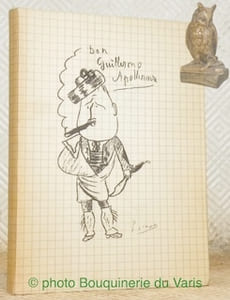 bon
Guillaume
Apollinaire
Picasso
© photo Bouquinerie du Varis